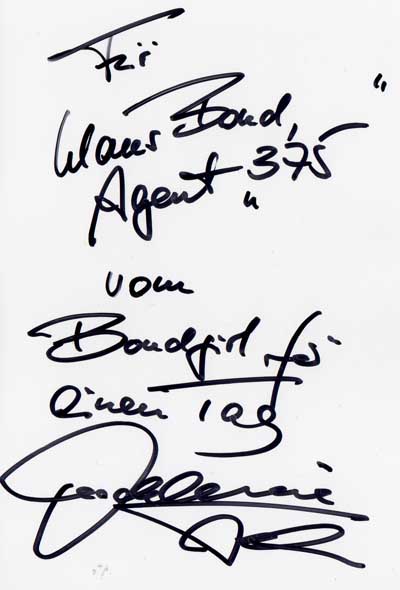 Für
Klaus Bond, "
Agent 375
"
vom
"Bondgirl für
einen Tag"